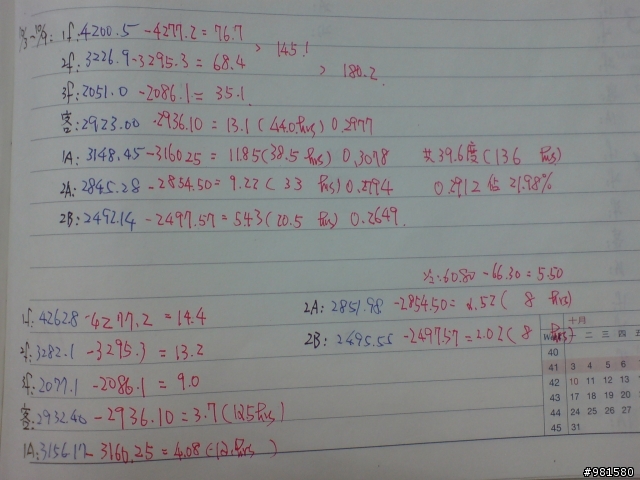 10/3~10/9: 1f: 4200.5 -4277.2 = 76.7
> 145.1
2f: 3226.9 -3295.3 = 68.4
> 180.2
3f: 2051.0 -2086.1 = 35.1
客: 2923.00 -2936.10 = 13.1 (44.0 hrs) 0.2977
1A: 3148.45 -3160.25 = 11.85 (38.5 hrs) 0.3078 共39.6度 (136 hrs)
2A: 2845.28 -2854.50 = 9.22 (33 hrs) 0.2794 0.2912 佔 21.98%
2B: 2492.14 -2497.57 = 5.43 (20.5 hrs) 0.2649
60.80 -66.30 = 5.50
1f: 4262.8 -4277.2 = 14.4 2A: 2851.98 -2854.50 = 2.52 (8 hrs)
2f: 3282.1 -3295.3 = 13.2 2B: 2495.55 -2497.57 = 2.02 (8 hrs)
3f: 2077.1 -2086.1 = 9.0
客: 2932.40 -2936.10 = 3.7 (12.5 hrs)
1A: 3156.17 -3160.25 = 4.08 (12 hrs)
十月
二 三 四 五
40
41 3 4 5 6
42 10 11 12 13
43 17 18 19 20
44 24 25 26 27
45 31
#981580